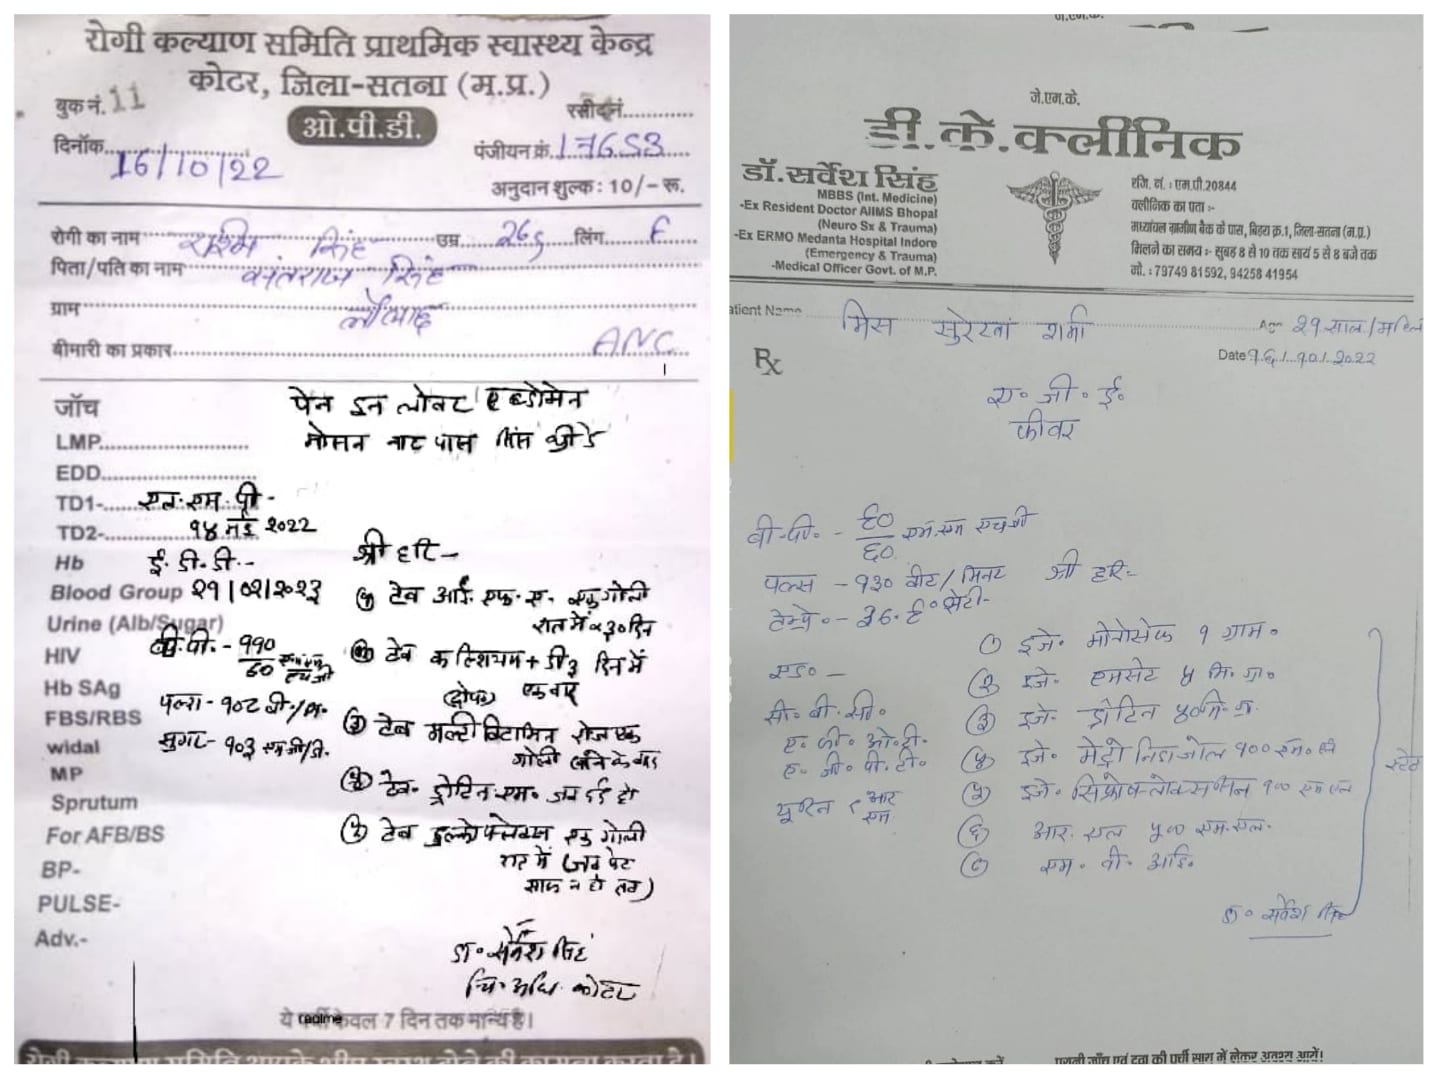 रोगी कल्याण समिति प्राथमिक स्वास्थ्य केन्द्र
कोटर, जिला-सतना (म.प्र.)
बुक नं. 11
ओ.पी.डी.
रसीद नं.
दिनाँक 16/10/22
पंजीयन क्रं. 17653
अनुदान शुल्क: 10/- रू.
रोगी का नाम रश्मि सिंह उम्र 26 लिंग F
पिता/पति का नाम सिंह
ग्राम
बीमारी का प्रकार ANC
पेन इन लोवर एब्डोमेन
मोसन नाट पास सिंस थ्री डे
जाँच
LMP
EDD
TD1- एल. एम. पी -
TD2- १४ मई २०२२
Hb ई. डी. डी. -
Blood Group २१/०२/२०२३
Urine (Alb/Sugar)
HIV बी. पी. - ११०
Hb SAg
FBS/RBS पल्स - १०८ बी./मि.
widal सुगर - १०३ एम जी/डी.
MP
Sprutum
For AFB/BS
BP-
PULSE-
Adv.-
श्री हरि -
① टेब आई. एफ. ए. एक गोली
रात में x ३० दिन
② टेब कैल्शियम + डी३ दिन में
एक बार
③ टेब मल्टी विटामिन रोज एक
गोली खाने के बाद
④ टेब ड्रोटिन एम. जब दर्द हो
⑤ टेब डुल्कोफ्लेक्स एक गोली
रात में (जब पेट
साफ न हो तब)
डा. सर्वेश सिंह
चि. अधि. कोटर
ये पर्ची केवल 7 दिन तक मान्य है।
realme
रोगी कल्याण समिति आपके शीघ्र स्वस्थ होने की कामना करता है।
जे.एम.के.
डी.के.क्लीनिक
डॉ.सर्वेश सिंह
MBBS (Int. Medicine)
-Ex Resident Doctor AIIMS Bhopal
(Neuro Sx & Trauma)
-Ex ERMO Medanta Hospital Indore
(Emergency & Trauma)
-Medical Officer Govt. of M.P.
रजि. नं. : एम.पी.20844
क्लीनिक का पता :-
मध्यांचल ग्रामीण बैंक के पास, बिहरा क्र.1, जिला-सतना (म.प्र.)
मिलने का समय :- सुबह 8 से 10 तक सायं 5 से 8 बजे तक
मो. : 79749 81592, 94258 41954
atient Name मिस सुरेखा शर्मा Age २१ साल/महिला
Rx
Date १६/१०/२०२२
ए. जी. ई.
फीवर
बी. पी. - ९०/६० एम. एम एच जी
पल्स - १३० बीट/मिनट
टेम्प्रे. - ३८.९° सेटी-
एड. -
सी. बी. सी.
एस. जी. ओ. टी.
एस. जी. पी. टी.
यूरिन आर
एम
श्री हरि:-
① इंजे. मोनोसेफ १ ग्राम.
② इंजे. एमसेट ४ मि. ग्रा.
③ इंजे. ड्रोटिन ४० मि. ग्रा.
④ इंजे. मेट्रोनिडाजोल १०० एम. एल
⑤ इंजे. सिप्रोफ्लोक्सासीन १०० एम एल
⑥ आर. एल ५०० एम. एल.
⑦ एम. वी. आई.
स्टेट
डा. सर्वेश सिंह
पुरानी जाँच एवं दवा की पर्ची साथ में लेकर अवश्य आयें।